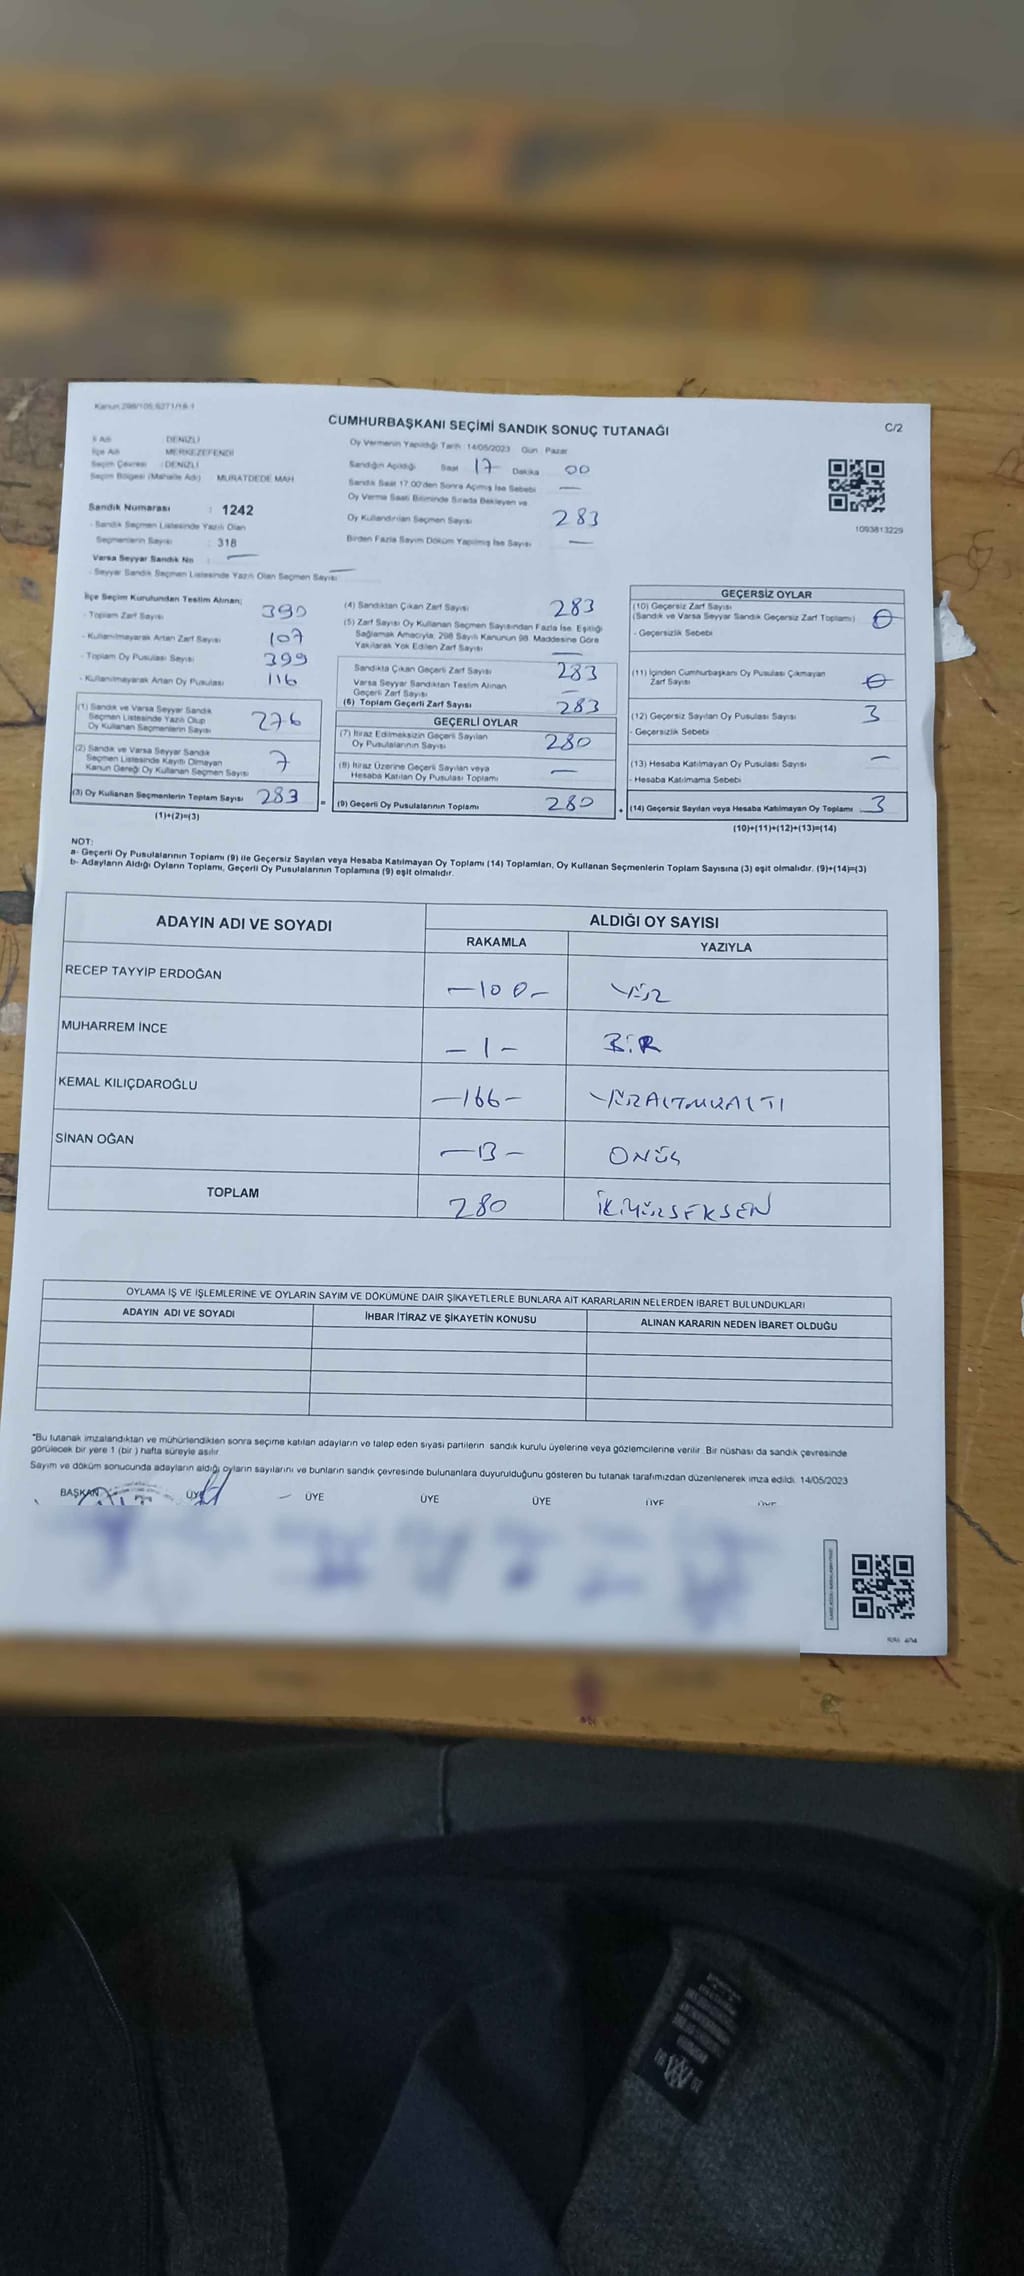 Kanun:298/105;6271/18-1
CUMHURBAŞKANI SEÇİMİ SANDIK SONUÇ TUTANAĞI
C/2
İl Adı DENİZLİ
İlçe Adı MERKEZEFENDİ
Seçim Çevresi : DENİZLİ
Seçim Bölgesi (Mahalle Adı) MURATDEDE MAH
Sandık Numarası : 1242
- Sandık Seçmen Listesinde Yazılı Olan
Seçmenlerin Sayısı : 318
Varsa Seyyar Sandık No
- Seyyar Sandık Seçmen Listesinde Yazılı Olan Seçmen Sayısı
Oy Vermenin Yapıldığı Tarih : 14/05/2023 Gün : Pazar
Sandığın Açıldığı Saat 17 Dakika 00
Sandık Saat 17.00'den Sonra Açılmış İse Sebebi —
Oy Verme Saati Bitiminde Sırada Bekleyen ve
Oy Kullandırılan Seçmen Sayısı 283
Birden Fazla Sayım Döküm Yapılmış İse Sayısı —
1093813229
İlçe Seçim Kurulundan Teslim Alınan;
- Toplam Zarf Sayısı 390
- Kullanılmayarak Artan Zarf Sayısı 107
- Toplam Oy Pusulası Sayısı 399
- Kullanılmayarak Artan Oy Pusulası 116
(1) Sandık ve Varsa Seyyar Sandık
Seçmen Listesinde Yazılı Olup
Oy Kullanan Seçmenlerin Sayısı 276
(2) Sandık ve Varsa Seyyar Sandık
Seçmen Listesinde Kayıtlı Olmayan
Kanun Gereği Oy Kullanan Seçmen Sayısı 7
(3) Oy Kullanan Seçmenlerin Toplam Sayısı 283
(1)+(2)=(3)
(4) Sandıktan Çıkan Zarf Sayısı 283
(5) Zarf Sayısı Oy Kullanan Seçmen Sayısından Fazla İse, Eşitliği
Sağlamak Amacıyla; 298 Sayılı Kanunun 98. Maddesine Göre
Yakılarak Yok Edilen Zarf Sayısı —
Sandıkta Çıkan Geçerli Zarf Sayısı 283
Varsa Seyyar Sandıktan Teslim Alınan
Geçerli Zarf Sayısı —
(6) Toplam Geçerli Zarf Sayısı 283
GEÇERLİ OYLAR
(7) İtiraz Edilmeksizin Geçerli Sayılan
Oy Pusulalarının Sayısı 280
(8) İtiraz Üzerine Geçerli Sayılan veya
Hesaba Katılan Oy Pusulası Toplamı —
= (9) Geçerli Oy Pusulalarının Toplamı 280
GEÇERSİZ OYLAR
(10) Geçersiz Zarf Sayısı
(Sandık ve Varsa Seyyar Sandık Geçersiz Zarf Toplamı) 0
- Geçersizlik Sebebi
(11) İçinden Cumhurbaşkanı Oy Pusulası Çıkmayan
Zarf Sayısı 0
(12) Geçersiz Sayılan Oy Pusulası Sayısı 3
- Geçersizlik Sebebi
(13) Hesaba Katılmayan Oy Pusulası Sayısı —
- Hesaba Katılmama Sebebi
+ (14) Geçersiz Sayılan veya Hesaba Katılmayan Oy Toplamı 3
(10)+(11)+(12)+(13)=(14)
NOT:
a- Geçerli Oy Pusulalarının Toplamı (9) ile Geçersiz Sayılan veya Hesaba Katılmayan Oy Toplamı (14) Toplamları, Oy Kullanan Seçmenlerin Toplam Sayısına (3) eşit olmalıdır. (9)+(14)=(3)
b- Adayların Aldığı Oyların Toplamı, Geçerli Oy Pusulalarının Toplamına (9) eşit olmalıdır.
ADAYIN ADI VE SOYADI ALDIĞI OY SAYISI
RAKAMLA YAZIYLA
RECEP TAYYİP ERDOĞAN —100— YÜZ
MUHARREM İNCE — 1 — BİR
KEMAL KILIÇDAROĞLU —166— YÜZALTMIŞALTI
SİNAN OĞAN —13— ONÜÇ
TOPLAM 280 İKİYÜZSEKSEN
OYLAMA İŞ VE İŞLEMLERİNE VE OYLARIN SAYIM VE DÖKÜMÜNE DAİR ŞİKAYETLERLE BUNLARA AİT KARARLARIN NELERDEN İBARET BULUNDUKLARI
ADAYIN ADI VE SOYADI İHBAR İTİRAZ VE ŞİKAYETİN KONUSU ALINAN KARARIN NEDEN İBARET OLDUĞU
"Bu tutanak imzalandıktan ve mühürlendikten sonra seçime katılan adayların ve talep eden siyasi partilerin sandık kurulu üyelerine veya gözlemcilerine verilir. Bir nüshası da sandık çevresinde
görülecek bir yere 1 (bir ) hafta süreyle asılır.
Sayım ve döküm sonucunda adayların aldığı oyların sayılarını ve bunların sandık çevresinde bulunanlara duyurulduğunu gösteren bu tutanak tarafımızdan düzenlenerek imza edildi. 14/05/2023
BAŞKAN ÜYE ÜYE ÜYE ÜYE ÜYE ÜYE